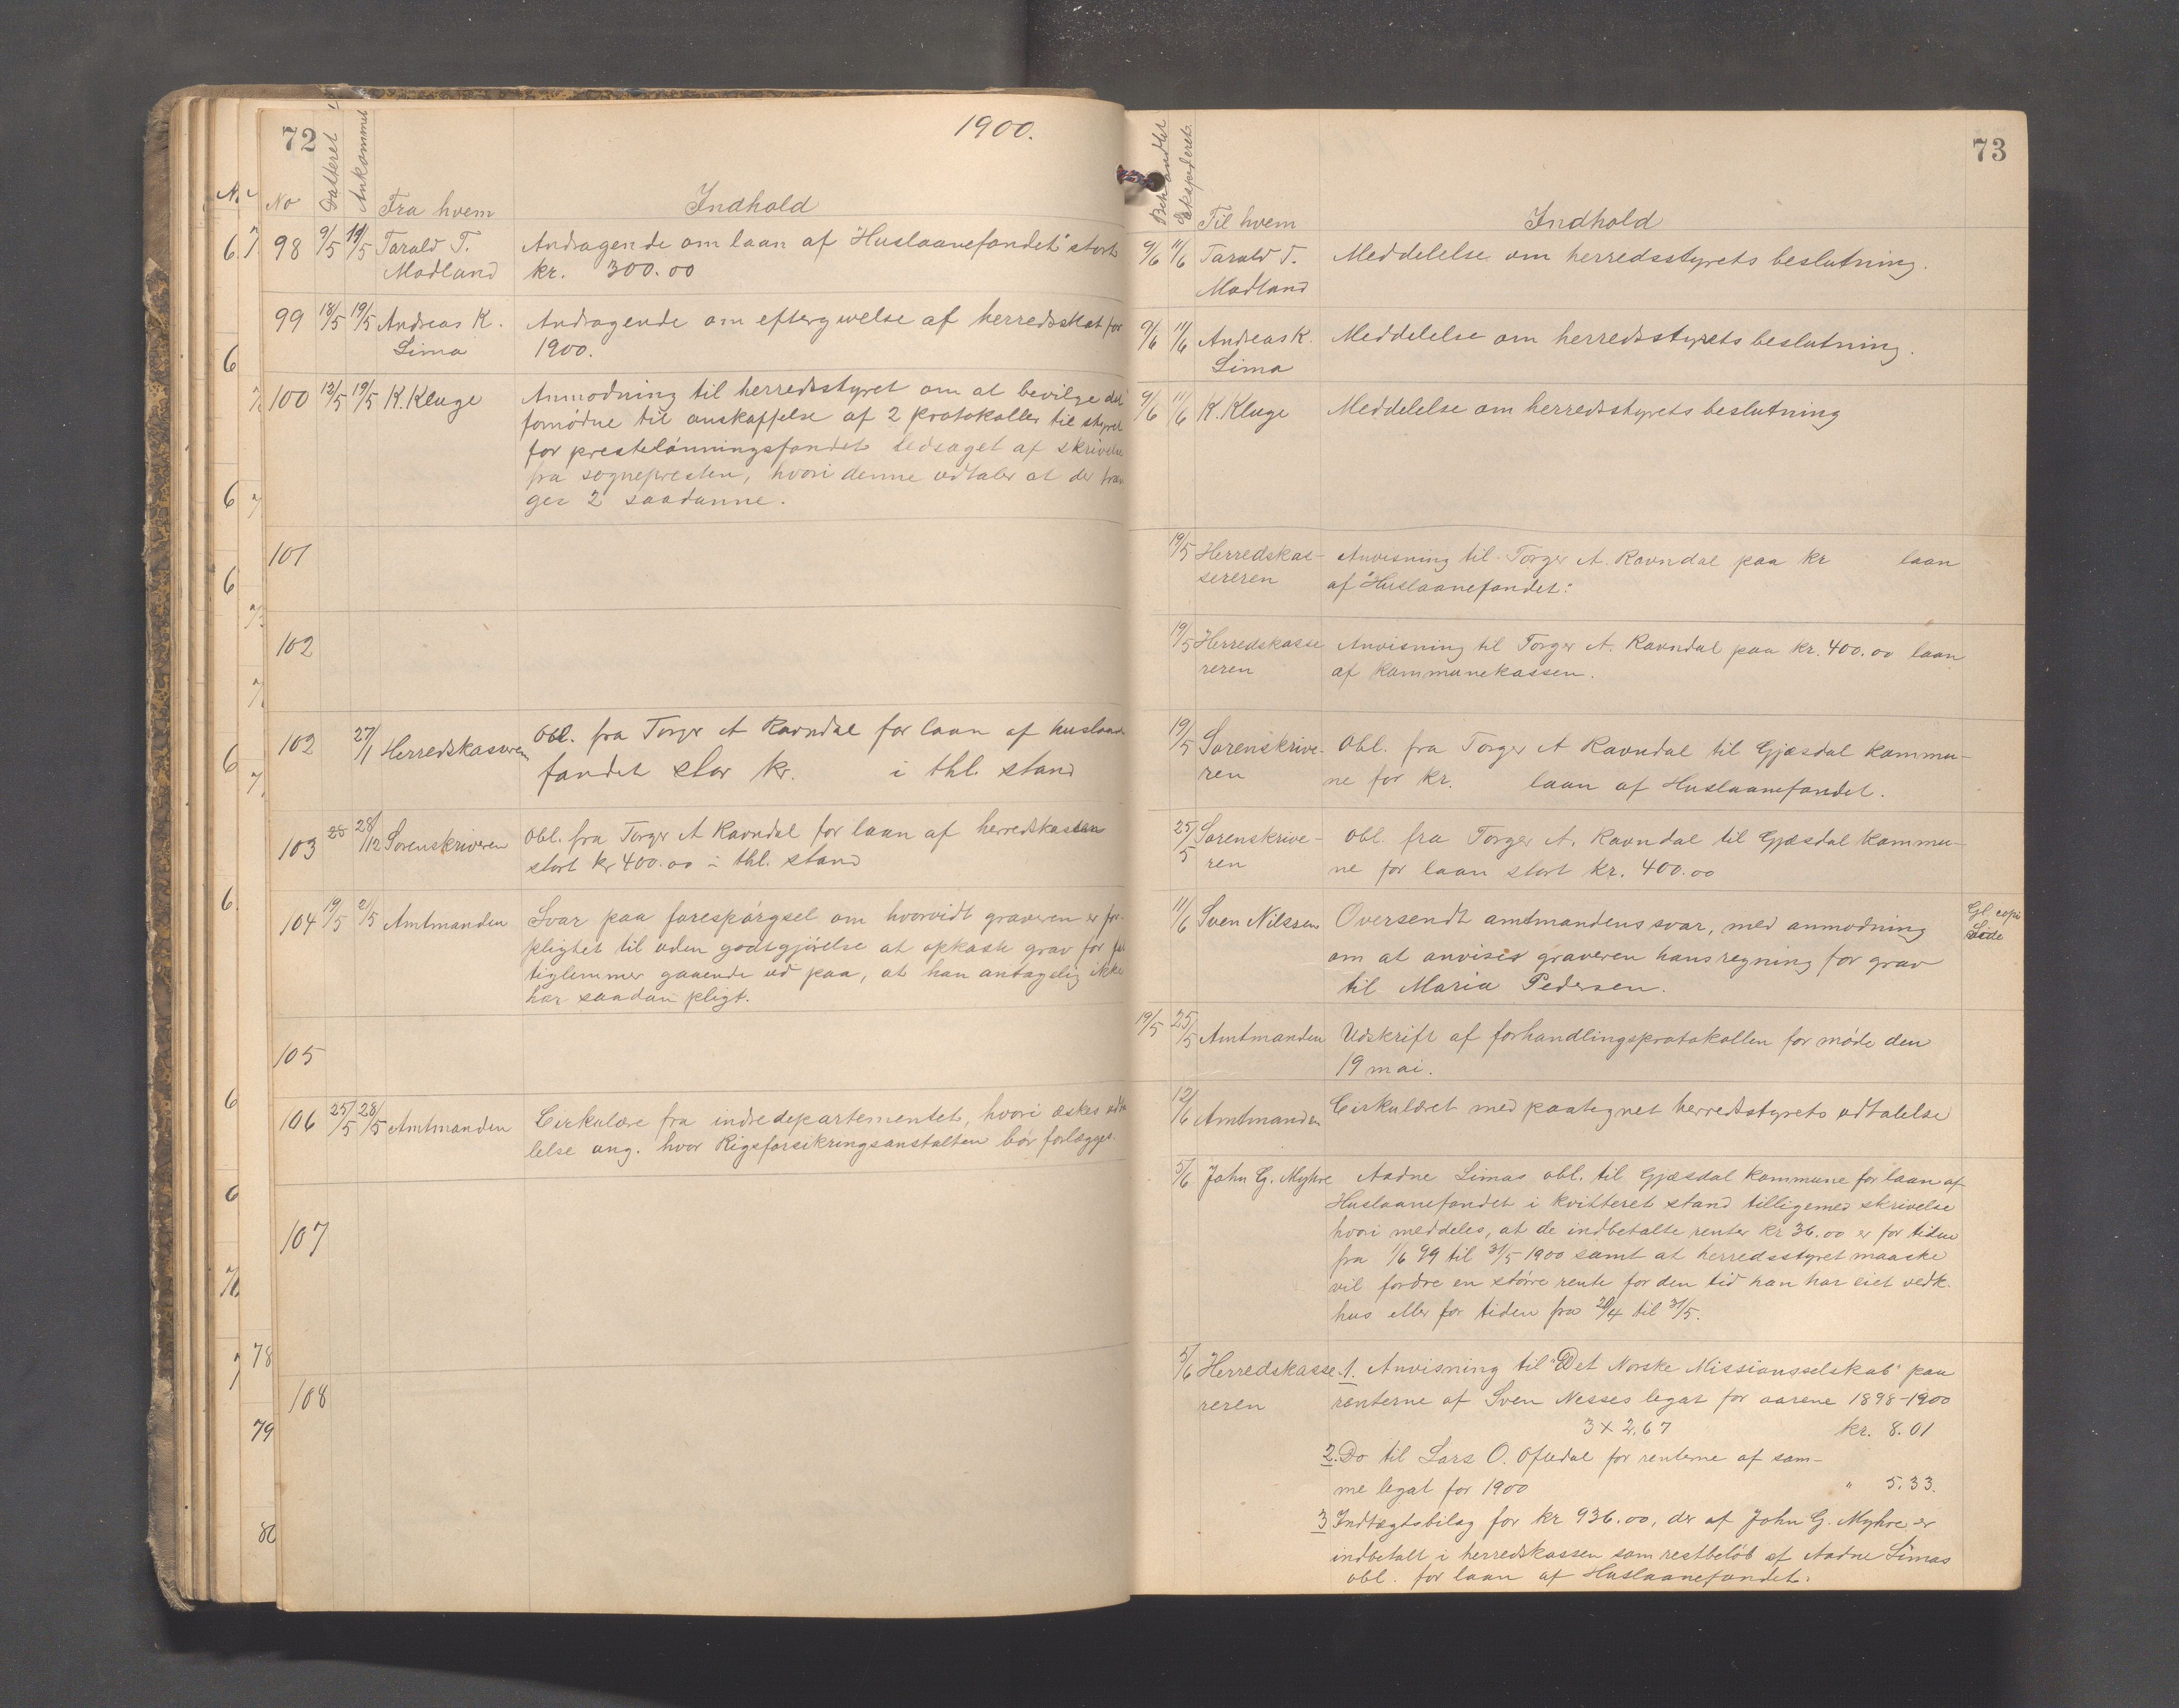 72
1900.
No Datteret Ankommet Fra hvem Indhold
98 9/5 19/5 Tarald T. Andragende om laan af "Huslaanefondet" stort
Madland kr. 300.00
99 18/5 19/5 Andreas K. Andragende om eftergivelse af herredsskat for
Lima 1900.
100 12/5 19/5 K. Kluge Anmodning til herredsstyret om at bevilge det
fornødne til anskaffelse af 2 protokoller til styret
for prestelønningsfondet ledsaget af skrivelse
fra sognepresten, hvori denne udtaler at der træn
ger 2 saadanne.
101
102
102 27/1 Herredskasseren Obl. fra Torger A Ravndal for laan af huslaane
fondet stor kr. i thl. stand
103 28 28/12 Sorenskriveren Obl. fra Torger A Ravndal for laan af herredskassen
stort kr 400.00 i thl. stand
104 19/5 2/5 Amtmanden Svar paa forespørgsel om hvorvidt graveren er for-
pligtet til uden godtgjørelse at opkaste grav for fat
tiglemmer gaaende ud paa, at han antagelig ikke
har saadan pligt.
105
106 25/5 28/5 Amtmanden Cirkulære fra indredepartementet, hvori æskes udta
lelse ang. hvor Rigsforsikringsanstalten bør forlægges.
107
108
73
Behandlet Ekspederet. Til hvem Indhold
9/6 11/6 Tarald T. Meddelelse om herredsstyrets beslutning.
Madland
9/6 11/6 Andreas K. Meddelelse om herredsstyrets beslutning.
Lima
9/6 11/6 K. Kluge Meddelelse om herredsstyrets beslutning
19/5 Herredskas- Anvisning til Torger A. Ravndal paa kr laan
sereren af "Huslaanefondet".
19/5 Herredskasse Anvisning til Torger A. Ravndal paa kr. 400.00 laan
reren af kommunekassen.
19/5 Sorenskrive- Obl. fra Torger A Ravndal til Gjæsdal kommu-
ren ne for kr. laan af Huslaanefondet.
25/5 Sorenskrive- Obl. fra Torger A. Ravndal til Gjæsdal kommu-
ren ne for laan stort kr. 400.00
11/6 Sven Nilssen Oversendt amtmandens svar, med anmodning Gl. copi
om at anvise graveren hans regning for grav Side
til Maria Pedersen.
19/5 25/5 Amtmanden Udskrift af forhandlingsprotokollen for møde den
19 mai.
12/6 Amtmanden Cirkulæret med paategnet herredsstyrets udtalelse
5/6 John G. Myhre Aadne Limas obl. til Gjæsdal kommune for laan af
Huslaanefondet i kvitteret stand tilligemed skrivelse
hvori meddeles, at de indbetalte renter kr 36.00 er for tiden
fra 1/6 99 til 31/5 1900 samt at herredsstyret maaske
vil fordre en større rente for den tid han har eiet vedk.
hus eller for tiden fra 20/4 til 31/5.
5/6 Herredskasse 1. Anvisning til "Det Norske Missionsselskab" paa
reren renterne af Sven Nesses legat for aarene 1898-1900
3 x 2.67 kr. 8.01
2. Do til Lars O. Oftedal for renterne af sam-
me legat for 1900 " 5.33.
3 Indtægtsbilag for kr 936.00, der af John G. Myhre er
indbetalt i herredskassen som restbeløb af Aadne Limas
obl. for laan af Huslaanefondet.